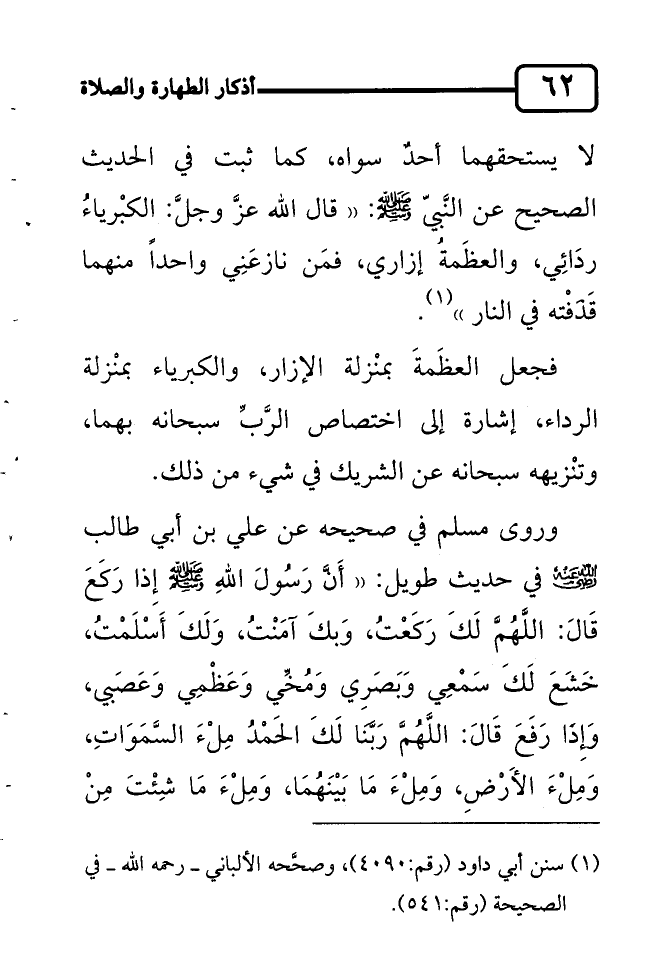 أذكار الطهارة والصلاة ٦٢
لا يستحقهما أحدٌ سواه، كما ثبت في الحديث
الصحيح عن النَّبيّ ﷺ: « قال الله عزَّ وجلَّ: الكبْرياءُ
ردَائِي، والعظَمةُ إزاري، فمَن نازعَنِي واحداً منهما
قَذَفْته في النار »(١).
فجعل العظَمةَ بمنْزلة الإزار، والكبرياء بمنْزلة
الرداء، إشارة إلى اختصاص الرَّبِّ سبحانه بهما،
وتنْزيهه سبحانه عن الشريك في شيء من ذلك.
وروى مسلم في صحيحه عن علي بن أبي طالب
رضي الله عنه في حديث طويل: « أَنَّ رَسُولَ اللهِ ﷺ إِذَا رَكَعَ
قَالَ: اللَّهُمَّ لَكَ رَكَعْتُ، وَبِكَ آمَنْتُ، وَلَكَ أَسْلَمْتُ،
خَشَعَ لَكَ سَمْعِي وَبَصَرِي وَمُخِّي وَعَظْمِي وَعَصَبِي،
وَإِذَا رَفَعَ قَالَ: اللَّهُمَّ رَبَّنَا لَكَ الحَمْدُ مِلْءَ السَّمَوَاتِ،
وَمِلْءَ الأَرْضِ، وَمِلْءَ مَا بَيْنَهُمَا، وَمِلْءَ مَا شِئْتَ مِنْ
(١) سنن أبي داود (رقم:٤٠٩٠)، وصحَّحه الألباني ـ رحمه الله ـ في
الصحيحة (رقم:٥٤١).